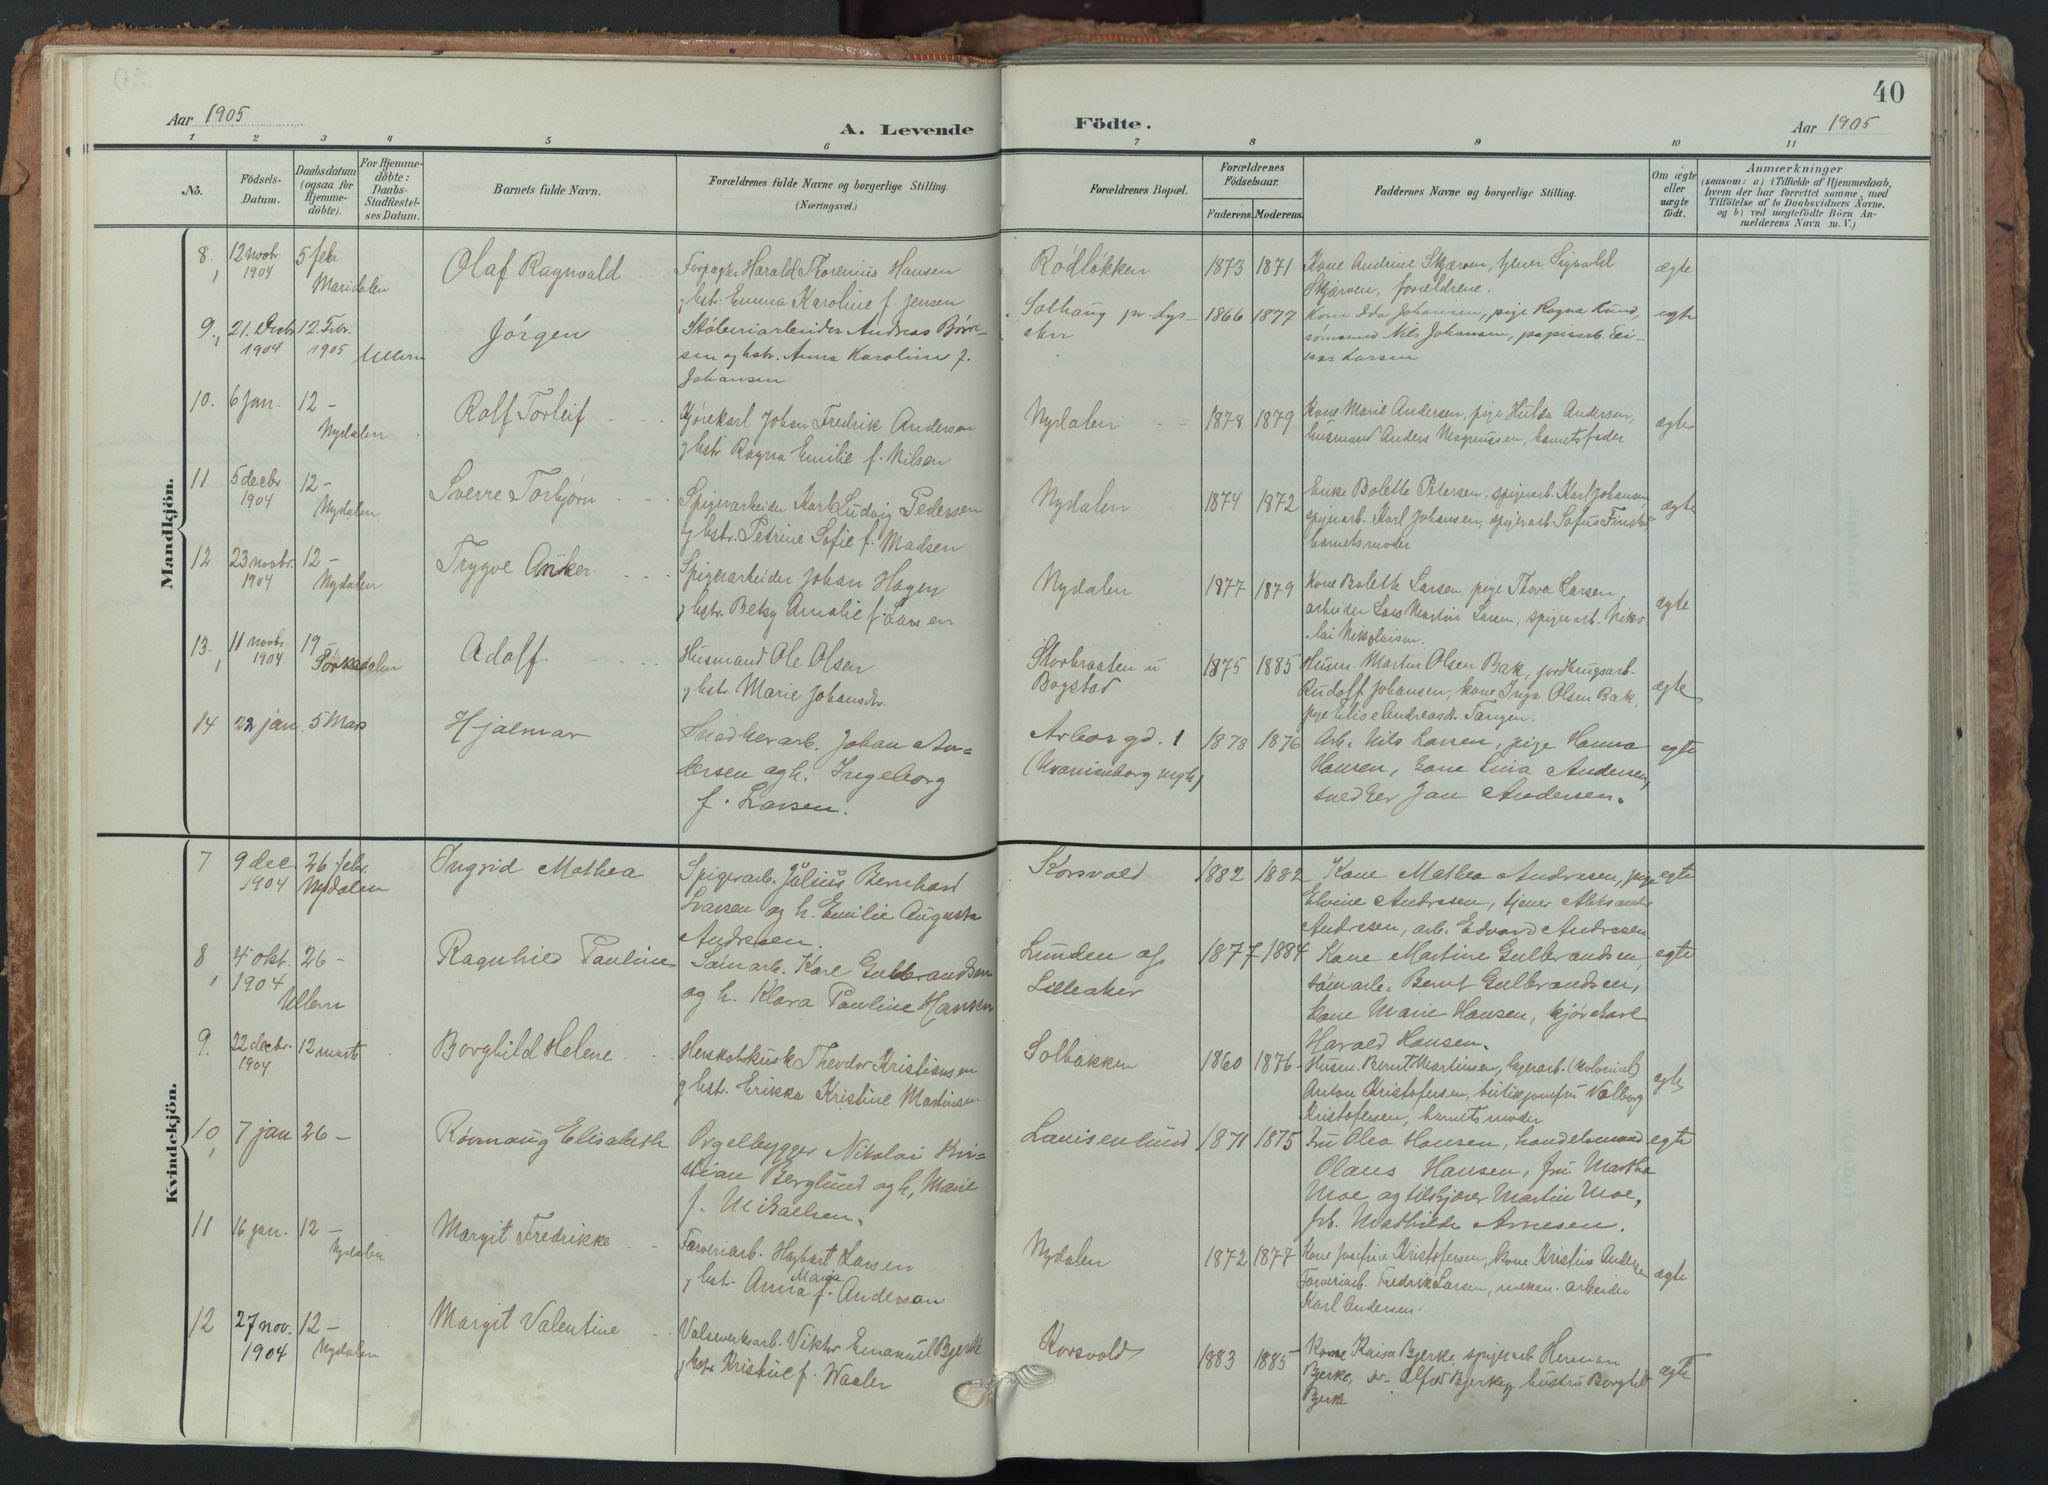 40
Aar 1905
A. Levende Födte.
Aar 1905
1 2 3 4 5 6 7 8 9 10 11
No.
Födsels-Datum.
Daabsdatum (ogsaa for Hjemmedöbte).
For Hjemmedöbte: Daabs-Stadfæstelses Datum.
Barnets fulde Navn.
Forældrenes fulde Navne og borgerlige Stilling.
(Næringsvei.)
Forældrenes Bopæl.
Forældrenes Födselsaar.
Faderens. Moderens.
Faddernes Navne og borgerlige Stilling.
Om ægte eller uægte födt.
Anmærkninger
(saasom: a) i Tilfælde af Hjemmedaab, hvem der har forrettet samme, med Tilföielse af to Daabsvidners Navne, og b) ved uægtefödte Börn Anmelderens Navn m. V.)
Mandkjön.
8. 12 novbr 1904 5 febr Maridalen Olaf Ragnvald Forpagter Harald Thorenius Hansen
og hstr. Emma Karoline f. Jensen
Rödløkken 1873 1871 Kone Andrine Skjærven, tjener Sigvald
Skjærven, forældrene. ægte
9. 21. 1904 12. Febr. 1905 Ullern Jörgen Støberiarbeider Andreas Børre-
sen og hstr. Anna Karoline f.
Johansen
Solhaug pr. Lysaker 1866 1877 Kone Ida Johansen, pige Ragna Lund,
sømsmed Nils Johansen, papirarb. Ei-
nar Larsen egte
10. 6 jan. 12 - Nydalen Rolf Torleif Kjørekarl Johan Fredrik Andersen
og hstr. Ragna Emilie f. Nilsen
Nydalen 1878 1879 Kone Marie Andersen, pige Hulda Andersen,
husmand Anders Magnussen, barnets fader ægte
11 5 decbr 1904 12 - Nydalen Sverre Torbjørn Spigerarbeider Karl Ludvig Pedersen
og hstr. Petrine Sofie f. Madsen
Nydalen 1874 1972 Enke Bolette Petersen, spigerarb. Karl Johansen,
spigerarb. Karl Johansen, spigerarb. Sofus Finstad
barnets moder ægte
12 23 novbr. 1904 12 - Nydalen Trygve Anker Spigerarbeider Johan Hagen
og hstr. Betsy Amalie f. Larsen
Nydalen 1877 1879 Kone Bolette Larsen, pige Thora Larsen,
arbeider Lars Martin Larsen, spigerarb. Niko-
lai Nikolaisen. ægte
13. 11 novbr 1904 19 - Sørkedalen Adolf Husmand Ole Olsen
og hstr. Marie Johansdtr.
Storbraaten u Bogstad 1875 1885 Husm. Martin Olsen Bak, jordbrugsarb.
Rudolf Johansen, kone Inga Olsen Bak,
pige Elise Andreasdtr. Tangen. ægte
14 22 jan. 5 Mars Hjalmar Snedkerarb. Johan An-
dersen og h. Ingeborg
f. Larsen.
Arbos gd. 1 1878 1876 Arb. Nils Larsen, pige Hanna
Hansen, kone Lina Andersen,
snedker Jan Andersen. egte
Kvindekjön.
7 9 dec. 1904 26 febr. Nydalen Ingrid Mathea Spigerarb. Julius Bernhard
Larsen og h. Emilie Augusta
Andresen.
Korsvold 1882 1882 Kone Mathea Andresen, pige
Elvine Andresen, tjener
Andresen, arb. Edvard Andresen. egte
8 4 okt. 1904 26 - Ullern Ragnhild Pauline Sømarb. Karl Gulbrandsen
og h. Klara Pauline Hansen
Lunden af Lilleaker 1877 1884 Kone Martine Gulbrandsen,
sømarb. Bernt Gulbrandsen,
kone Marie Hansen, kjørekarl
Harald Hansen. egte
9. 22 decbr. 1904 12 marts Borghild Helene Herskabskusk Theodor Kristiansen
og hstr. Erikka Kristine Martinsen
Solbakken 1860 1876 Husm. Bernt Martinsen, lagerarb. (kolonial)
Anton Kristofersen, butikjomfru Valborg
Kristofersen, barnets moder ægte
10 7 jan 26 - Rønnaug Elisabeth Orgelbygger Nikolai Kri-
stian Berglund og h. Marie
f. Mikaelsen.
Louisenlund 1871 1875 Fru Olea Hansen, handelsmand
Olaus Hansen, fru Martha
Moe og tilskjærer Martin Moe,
frk. Mathilde Arnesen. egte
11 16 jan. 12 - Nydalen Margit Fredrikke Farveriarb. Herbart Larsen
og hstr Anna Maria f. Anderson
Nydalen 1872 1877 Kone Josefine Kristofersen, kone Kristine Andersen
Farveriarb. Fredrik Larsen, mekan. arbeider
Karl Andersen. ægte
12 27 nov. 1904 12 - Nydalen Margit Valentine Valseverksarb. Viktor Emanuel Bjerke
og hstr Kristine f. Waaler
Korsvold 1883 1885 Kone Kaisa Bjerke, spigerarb Herman
Bjerke, Alfred Bjerke og hustru Borghild
Bjerke ægte